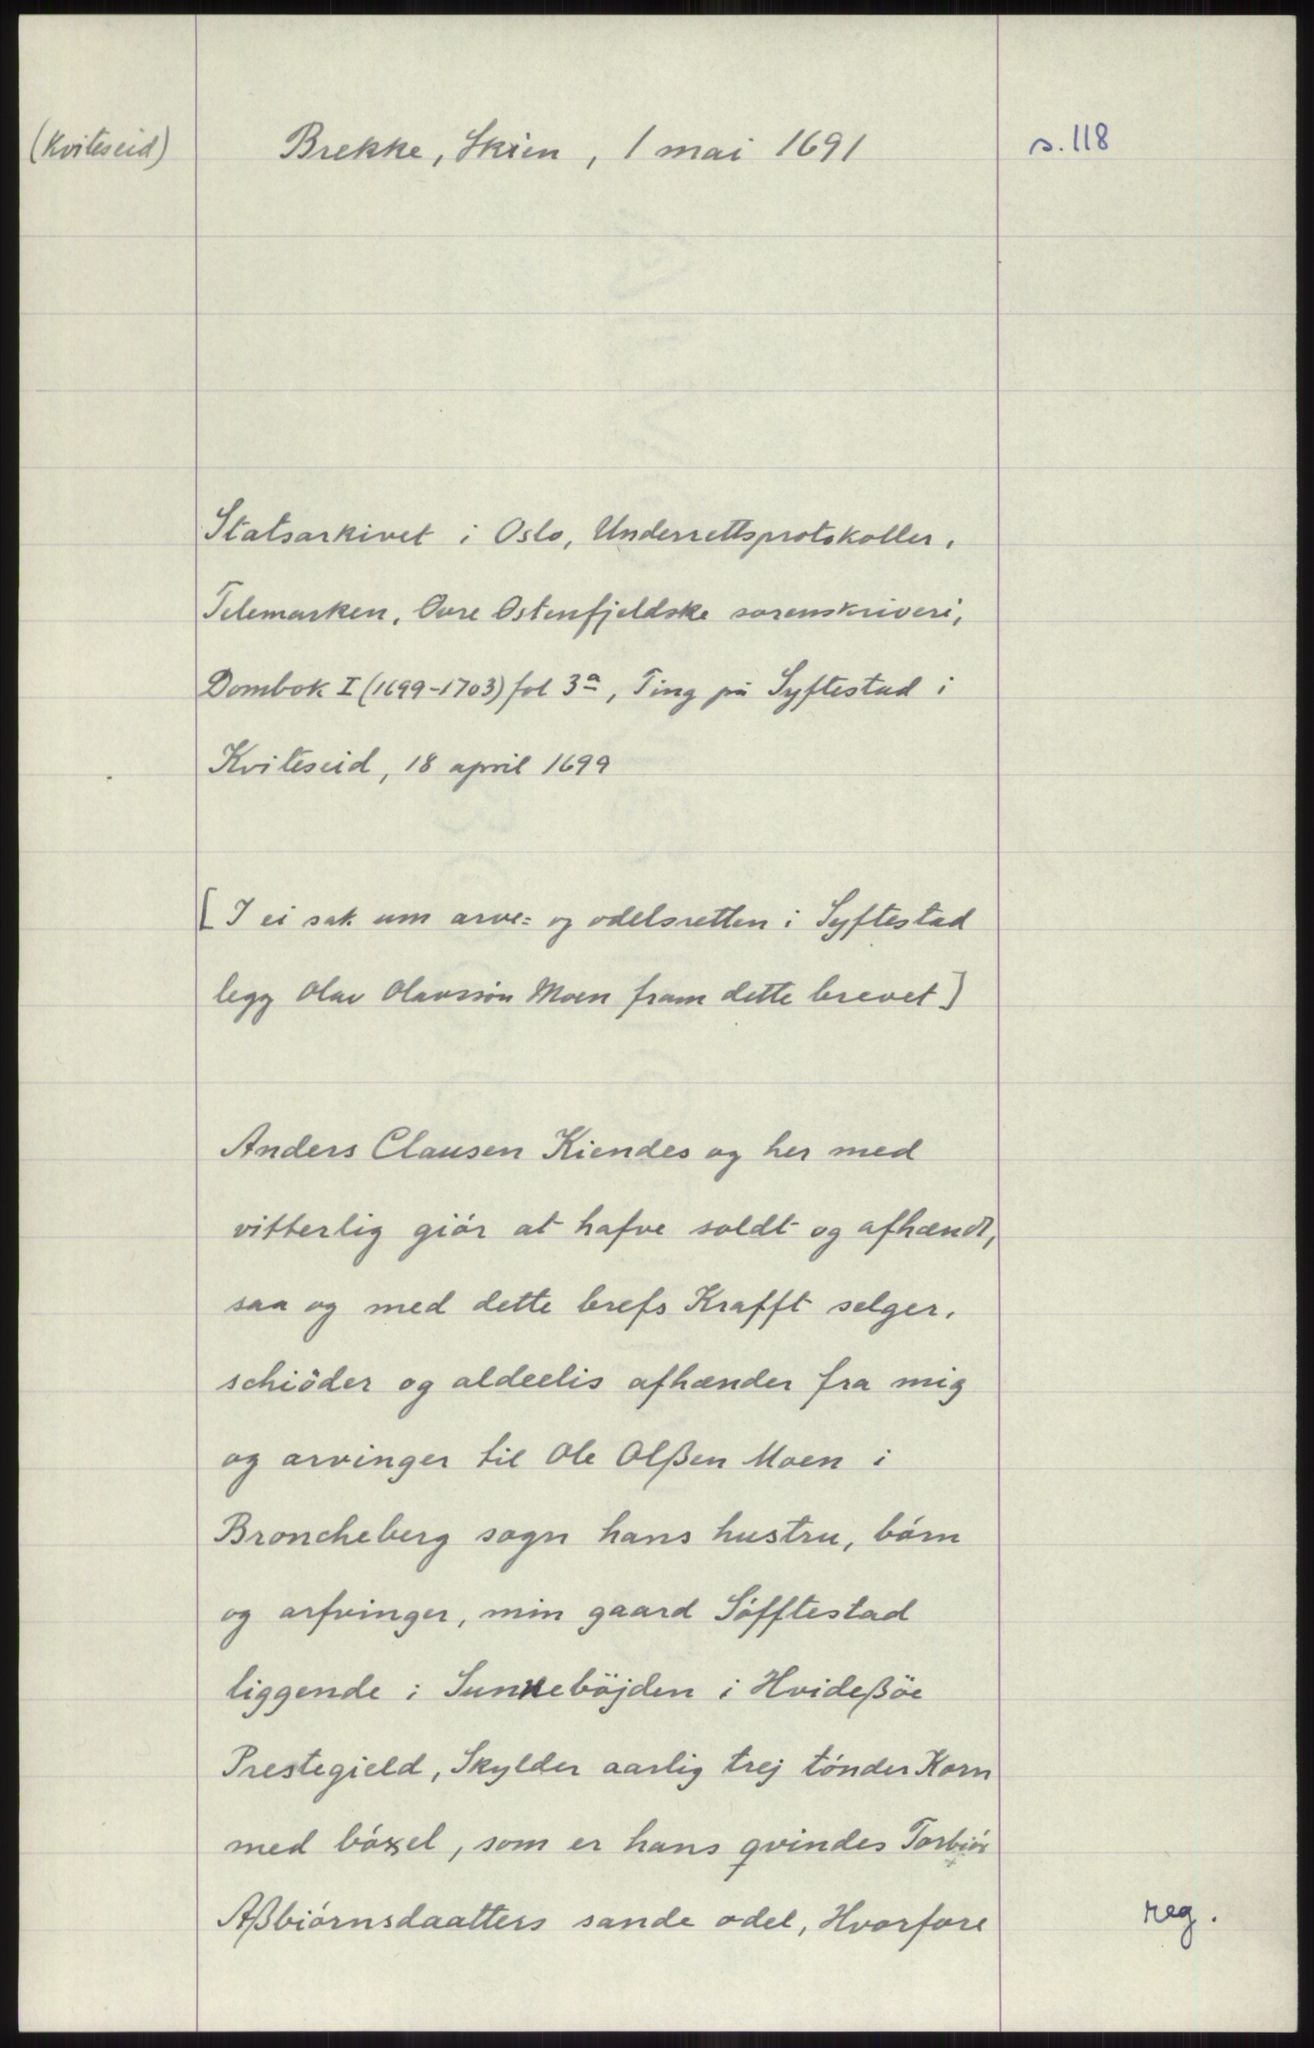 (Kviteseid)
Brekke, Skien, 1 mai 1691
s. 118
Statsarkivet i Oslo, Underrettsprotokoller,
Telemarken, Øvre Østenfjeldske sorenskriveri,
Dombok I (1699-1703) fol 3a, Ting på Syftestad i
Kviteseid, 18 april 1699
[I ei sak um arve= og odelsretten i Syftestad
legg Olav Olavsson Moen fram dette brevet]
Anders Clausen Kiendes og her med
vitterlig giór at hafve soldt og afhændt,
saa og med dette brefs Krafft selger,
schiöder og aldeelis afhænder fra mig
og arvinger til Ole Olßen Moen i
Broncheberg sogn hans hustru, bórn
og arfvinger, min gaard Sófftestad
liggende i Sunnebójden i Hvideßöe
Prestegield, Skylder aarlig trej tónder Korn
med bóxel, som er hans qvindes Torbiór
Aßbiórnsdaatters sande odel, Hvorfore
reg.